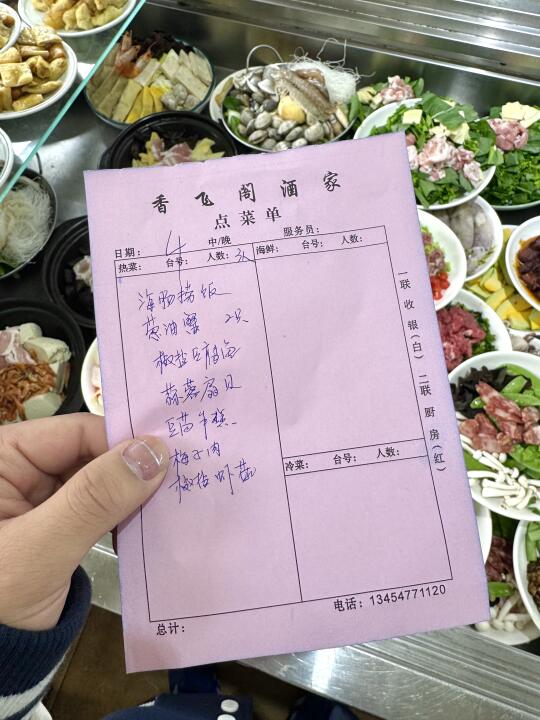 香飞阁酒家
点菜单
日期： 4 中/晚 服务员：
热菜： 台号： 人数：3人 海鲜： 台号： 人数：
海肠捞饭
葱油蟹 2只
椒盐豆腐鱼
蒜蓉扇贝
豆苗年糕
梅子肉
椒盐虾菇
冷菜： 台号： 人数：
一联收银(白) 二联厨房(红)
总计：
电话：13454771120